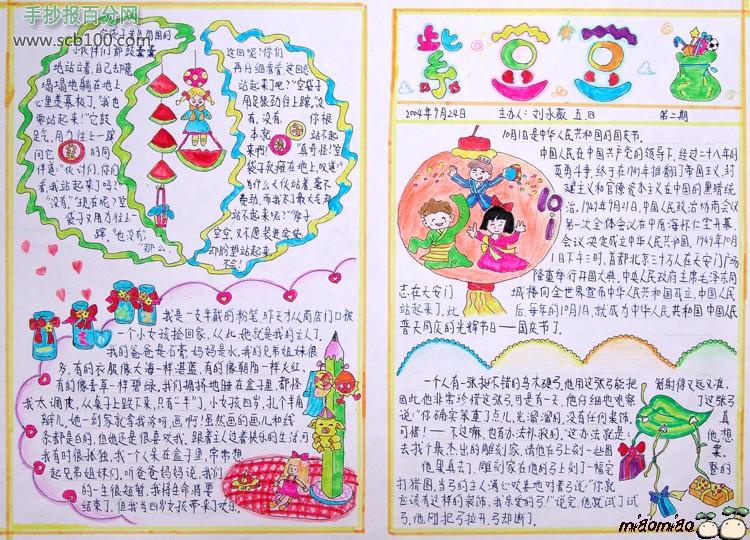 手抄报百分网
www.scb100.com
小伙伴们都鼓囊囊
地站立着,自己却瘪
塌塌地躺在地上,
心里羡慕极了。“我也
要站起来!”它鼓
足气,用力往上一蹿,
问它的同
伴道:“伙计们,你们
看我站起来了吗?”
“没有。”“现在呢?”空
袋子又用力往上一
蹿。“也没有。”
“那么,
这回呢?你们
再仔细看看,这回总
站起来了吧?”空袋子
用足狠劲往上蹿。“没
有,没有,你根
本就站不起
来啊!”“真奇怪!”空
袋子软瘫在地上,叹道:
为什么大伙站着,毫不
费劲,而我不了最大毛力
站不起来呢?”“除子
空空,又不愿装进实货,
却盼望站起来,
不会!
我是一支半截的粉笔,昨天才从商店门口被
一个小女孩捡回家,从此,他就是我的主人了。
我的爸爸是石膏,妈妈是水,我的兄弟姐妹很
多,有的衣服像大海一样湛蓝,有的像朝阳一样火红,
有的像青草一样碧绿。我们拥挤地睡在盒子里,都怪
我太调皮,从桌子上跌下来,只有“一半”了。小女孩四岁,扎个羊角
辫儿,她一到家就宠我涂呀,画啊!虽然画的画儿和线
条都是白的,但他还是很喜欢我,跟着主人过着快乐的生活可
我有时很孤独,我一个人呆在盒子里,常常想
起兄弟姐妹们。听爸爸妈妈说,我们
的一生很短暂,我将生命将要
结束了,但我为四岁女孩带来了欢乐。
紫豆豆
2004年9月24日 主办人:刘永薇 五.四 第二期
10月1日是中华人民共和国的国庆节。
中国人民在中国共产党的领导下,经过二十八年的
英勇斗争,终于在1949年推翻了帝国主义,封
建主义和官僚资本主义在中国的黑暗统
治,1949年9月21日,中国人民政治协商会议
第一次全体会议在中南海怀仁堂开幕。
会议决定成立中华人民共和国,1949年10月
1日下午三时,首都北京三十万人在天安门广场
隆重举行开国大典,中央人民政府主席毛泽东同
志,在天安门城楼向全世界宣布中华人民共和国成立,中国人民
站起来了,此后,每年的10月1日,就成为中华人民共和国中国人民
普天同庆的光辉节日——国庆节了。
10.1
一个人有一张挺不错的乌木硬弓,他用这张弓能把箭射得又远又准,
因此他非常珍惜这张弓。可是有一天,他仔细地观察了这张弓
说:“你确实笨重了点儿,光溜溜的,没有任何装饰,真
可惜!——不过嘛,也有办法补救的。”“这办法就是:他想:
去找个最杰出的雕刻家,请他在弓上刻一些图案。”
他果真去了,雕刻家在他的弓上刻了一幅完整的
打猎图,当弓的主人满心欢喜地对着弓说:“你就
应该有这样的装饰,我亲爱的弓!”说完,他就试了试
弓,他刚把弓拉开,弓却断了。
miaomiao